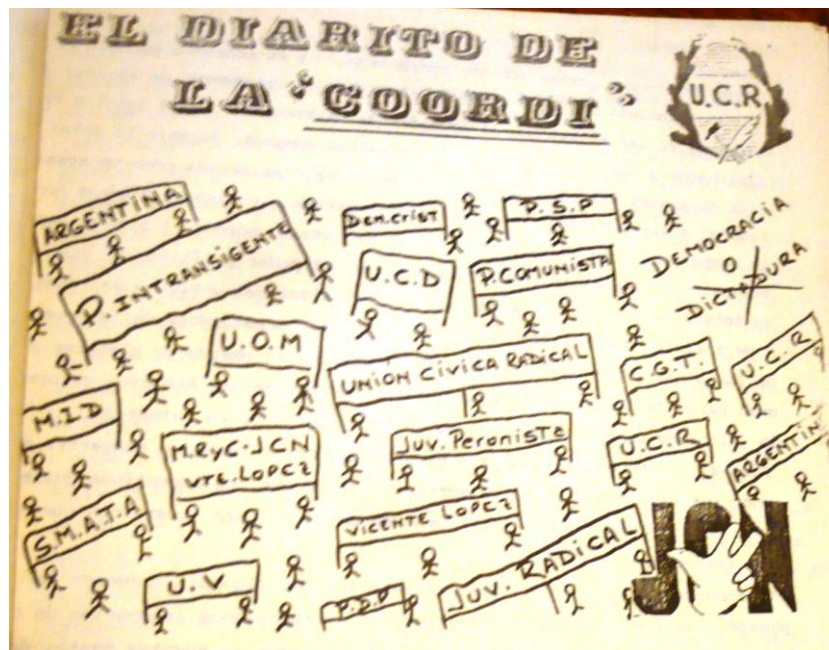 EL DIARITO DE
LA "COORDI"
U.C.R.
ARGENTINA
P. INTRANSIGENTE
Dem. Crist
P.S.P
DEMOCRACIA
O
DICTADURA
U.C.D
P. COMUNISTA
U.O.M
UNIÓN CÍVICA RADICAL
C.G.T.
U.C.R
M.I.D
M.RyC-JCN
VTE. LOPEZ
Juv. Peronista
U.C.R
ARGENTIN
S.M.A.T.A
VICENTE LOPEZ
U.V
P.D.P
JUV. RADICAL
JCN